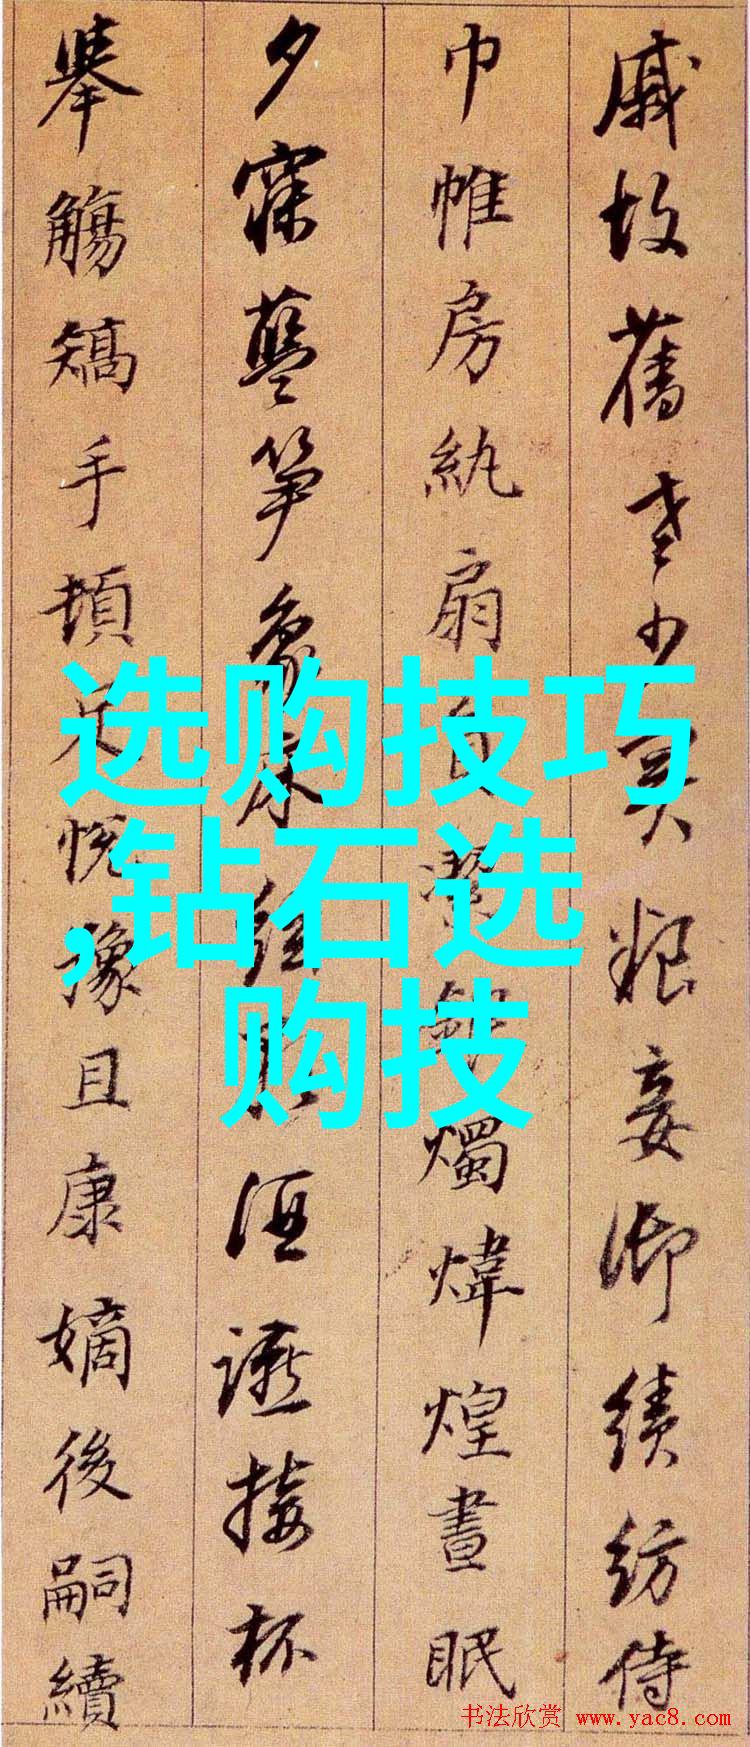 戚故舊老少異粮妾御績紡侍
巾帷房紈扇員潔銀燭煒煌晝眠
夕寐藍笋象床絃酒讌接杯
舉觴矯手頓足悅豫且康嫡後嗣續
选购技巧
,钻石选
购技
书法欣赏 www.yac8.com